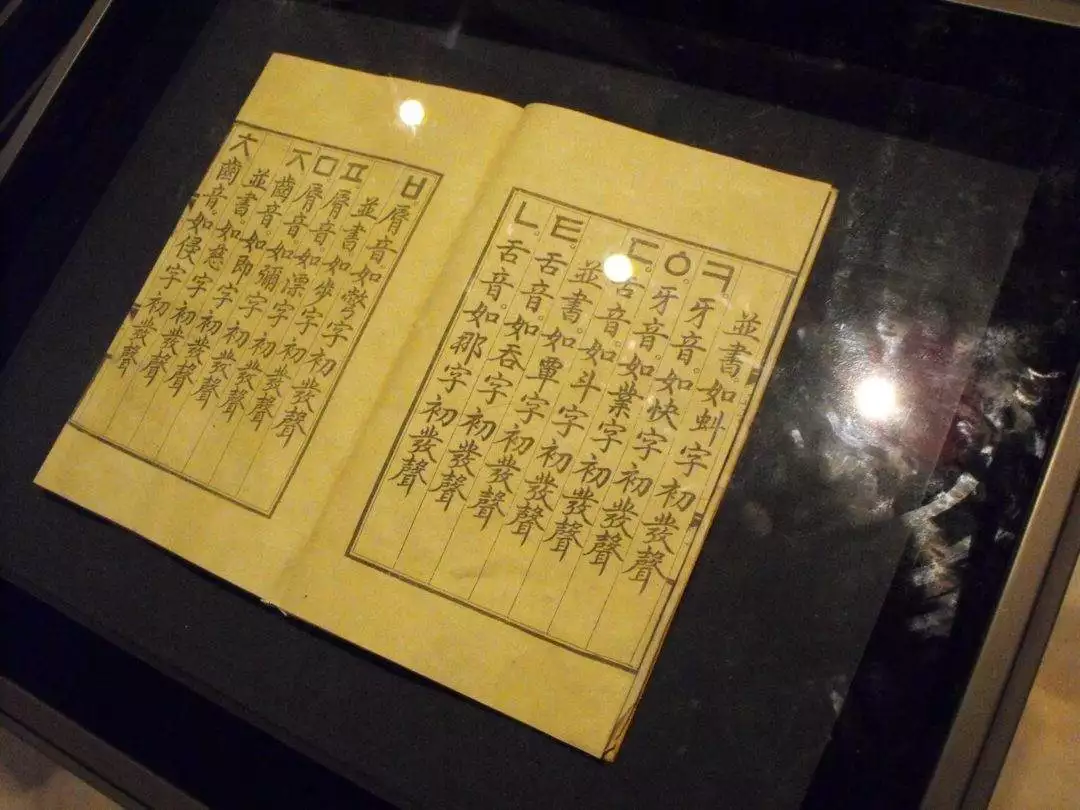 並書。如虯字初發聲
ㅋ。牙音。如快字初發聲
ㆁ。牙音。如業字初發聲
ㄷ。舌音。如斗字初發聲
並書。如覃字初發聲
ㅌ。舌音。如呑字初發聲
ㄴ。舌音。如那字初發聲
ㅂ。脣音。如彆字初發聲
並書。如步字初發聲
ㅍ。脣音。如漂字初發聲
ㅁ。脣音。如彌字初發聲
ㅈ。齒音。如即字初發聲
並書。如慈字初發聲
ㅊ。齒音。如侵字初發聲